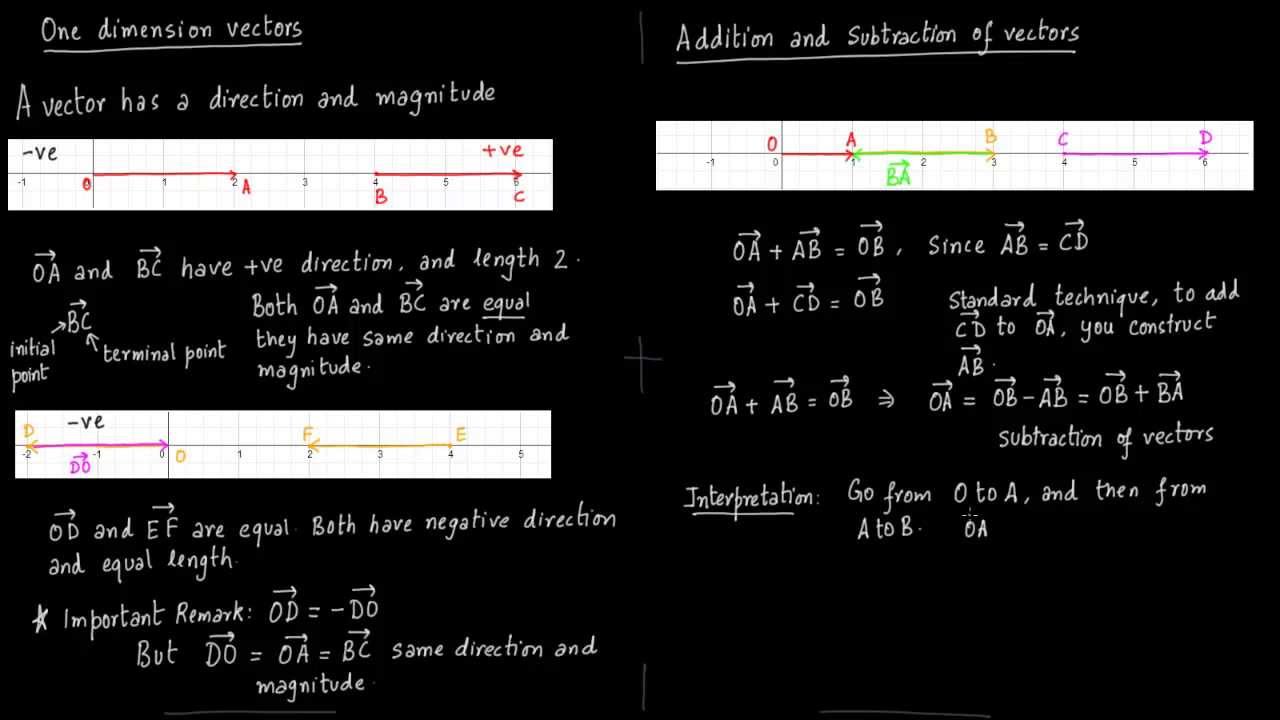 One dimension vectors
A vector has a direction and magnitude
-ve +ve
-1 0 1 2 A 3 4 5 6
B C
OA and BC have +ve direction, and length 2.
BC
initial point
terminal point
Both OA and BC are equal
they have same direction and
magnitude.
D -ve F E
-2 -1 0 O 1 2 3 4 5
DO
OD and EF are equal. Both have negative direction
and equal length.
* Important Remark: OD = -DO
But DO = OA = BC same direction and
magnitude.
Addition and Subtraction of vectors
O A B C D
-1 0 1 2 3 4 5 6
BA
OA + AB = OB, Since AB = CD
OA + CD = OB
Standard technique, to add
CD to OA, you construct
AB.
OA + AB = OB ⇒ OA = OB - AB = OB + BA
Subtraction of vectors
Interpretation: Go from O to A, and then from
A to B. OA